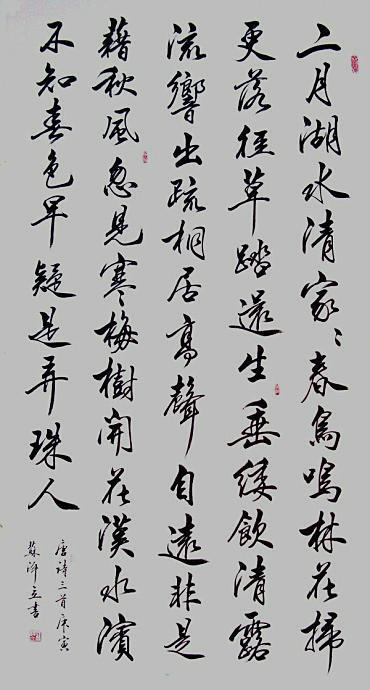 二月湖水清家〻春鳥鳴林花掃
更落徑草踏還生垂緌飲清露
流響出疏桐居高聲自遠非是
藉秋風忽見寒梅樹開花漢水濱
不知春色早疑是弄珠人
唐詩三首庚寅
蘇立書